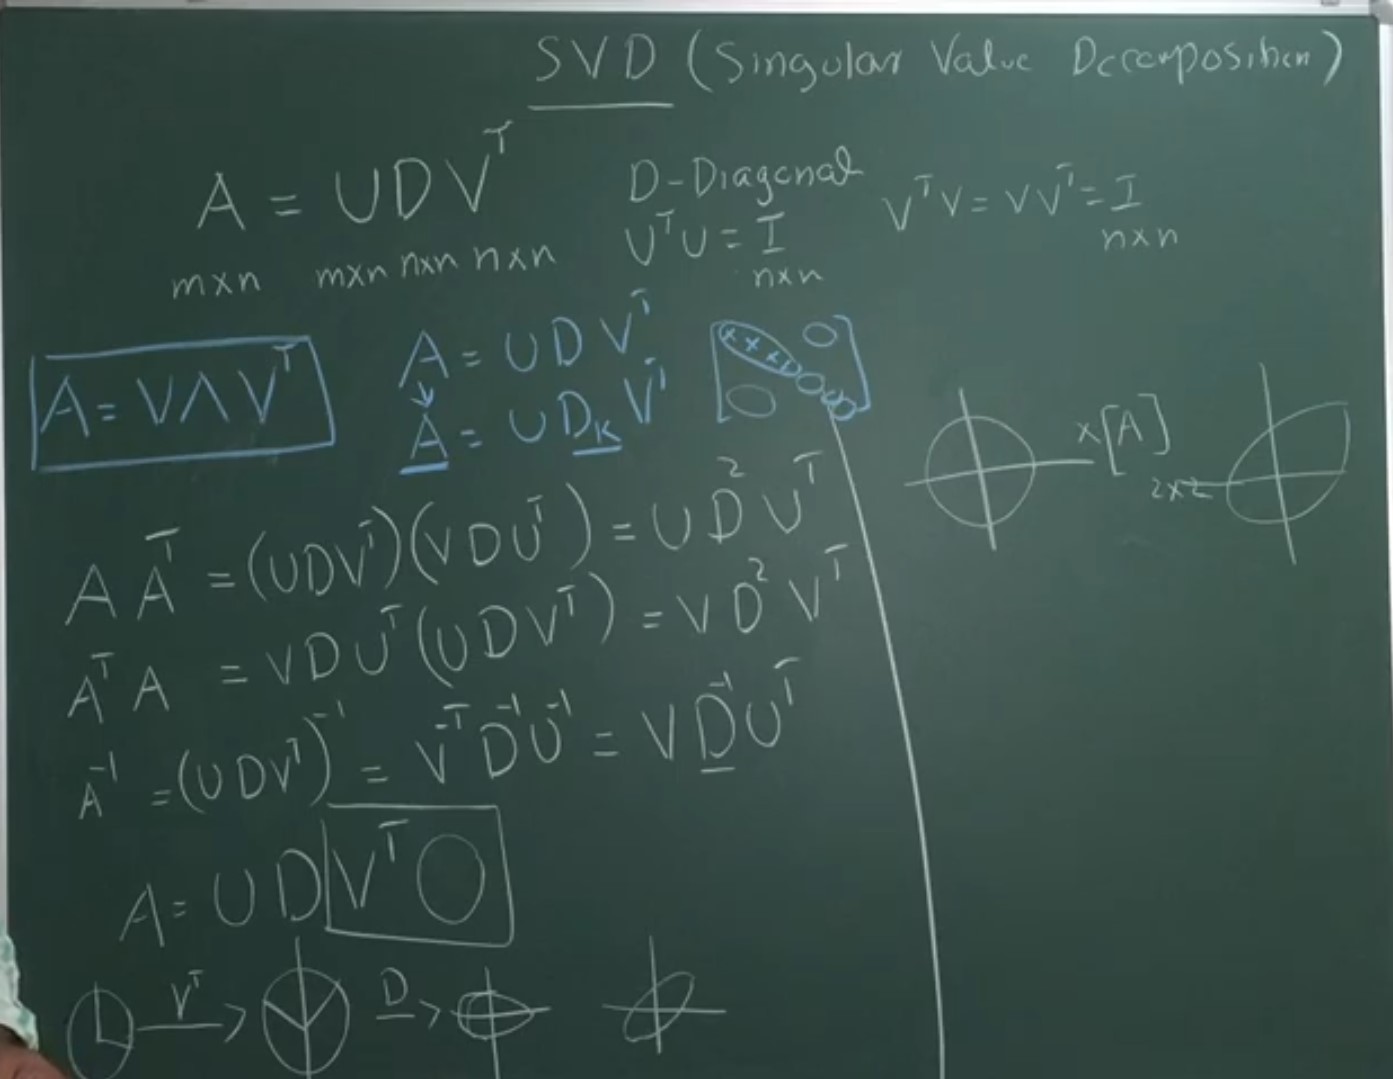 SVD (Singular Value Decomposition)
A = UDVᵀ
m×n m×n n×n n×n
D-Diagonal
UᵀU = I
n×n
VᵀV = VVᵀ = I
n×n
A = VΛVᵀ
A = UDVᵀ
Â = UD_K Vᵀ
x x x
x[A]
2x2
AAᵀ = (UDVᵀ)(VDUᵀ) = UD²Uᵀ
AᵀA = VDUᵀ(UDVᵀ) = VD²Vᵀ
A⁻¹ = (UDVᵀ)⁻¹ = V⁻ᵀD⁻¹U⁻¹ = VD⁻¹Uᵀ
A = UDVᵀ
Vᵀ
D